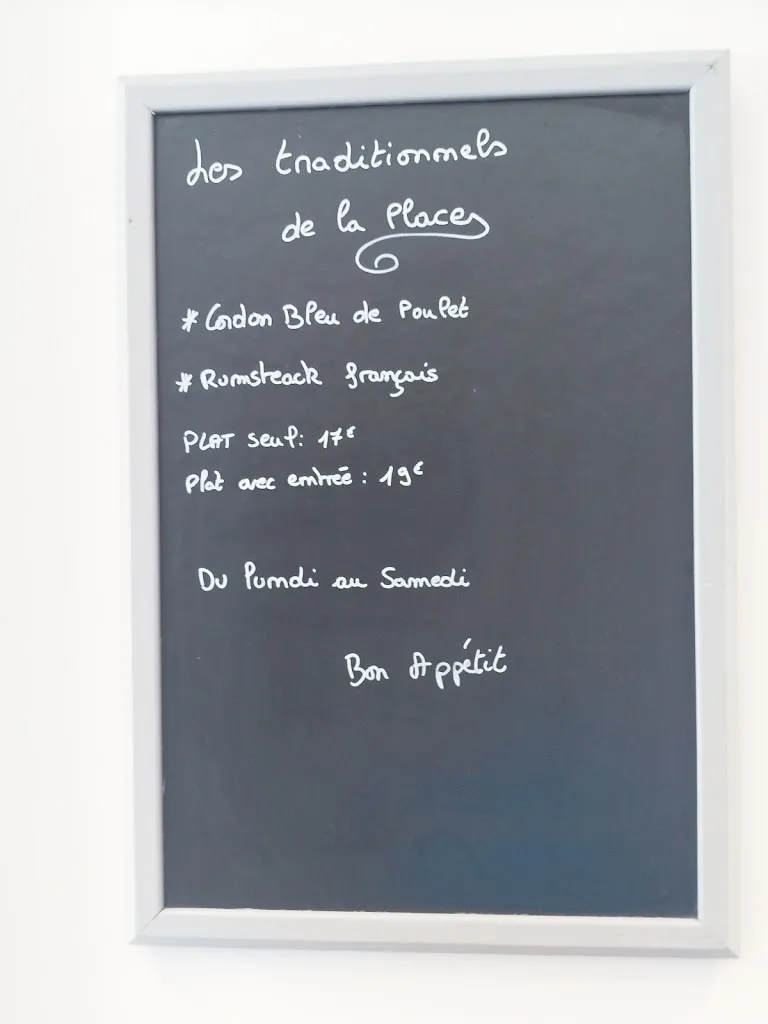 Les traditionnels
de la Place
* Cordon Bleu de Poulet
* Rumsteack français
PLAT seul: 17€
Plat avec entreé : 19€
Du lundi au Samedi
Bon Appétit